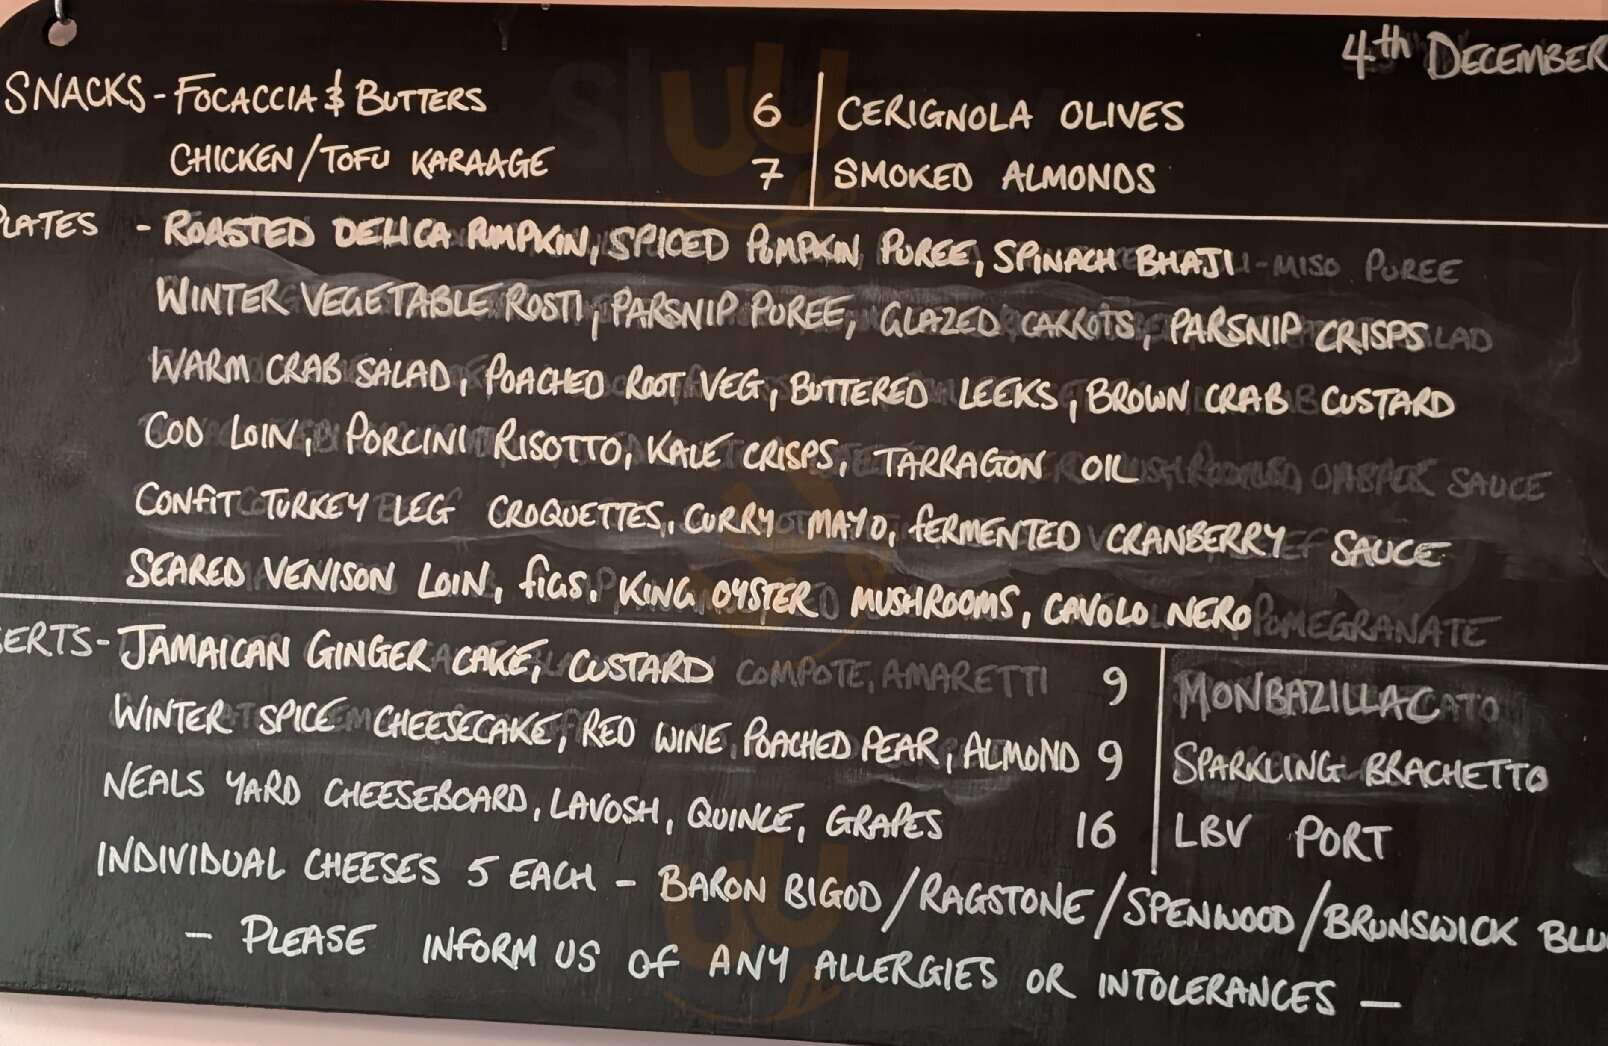 4th DECEMBER
SNACKS - FOCACCIA & BUTTERS 6 CERIGNOLA OLIVES
CHICKEN/TOFU KARAAGE 7 SMOKED ALMONDS
PLATES - ROASTED DELICA PUMPKIN, SPICED PUMPKIN PUREE, SPINACH BHAJI - MISO PUREE
WINTER VEGETABLE ROSTI, PARSNIP PUREE, GLAZED CARROTS, PARSNIP CRISPS
WARM CRAB SALAD, POACHED ROOT VEG, BUTTERED LEEKS, BROWN CRAB CUSTARD
COD LOIN, PORCINI RISOTTO, KALE CRISPS, TARRAGON OIL SAUCE
CONFIT TURKEY LEG CROQUETTES, CURRY MAYO, FERMENTED CRANBERRY SAUCE
SEARED VENISON LOIN, FIGS, KING OYSTER MUSHROOMS, CAVOLO NERO POMEGRANATE
SERTS - JAMAICAN GINGER CAKE, CUSTARD COMPOTE, AMARETTI 9 MONBAZILLAC
WINTER SPICE CHEESECAKE, RED WINE POACHED PEAR, ALMOND 9 SPARKLING BRACHETTO
NEALS YARD CHEESEBOARD, LAVOSH, QUINCE, GRAPES 16 LBV PORT
INDIVIDUAL CHEESES 5 EACH - BARON BIGOD/RAGSTONE/SPENWOOD/BRUNSWICK BLU
- PLEASE INFORM US OF ANY ALLERGIES OR INTOLERANCES -